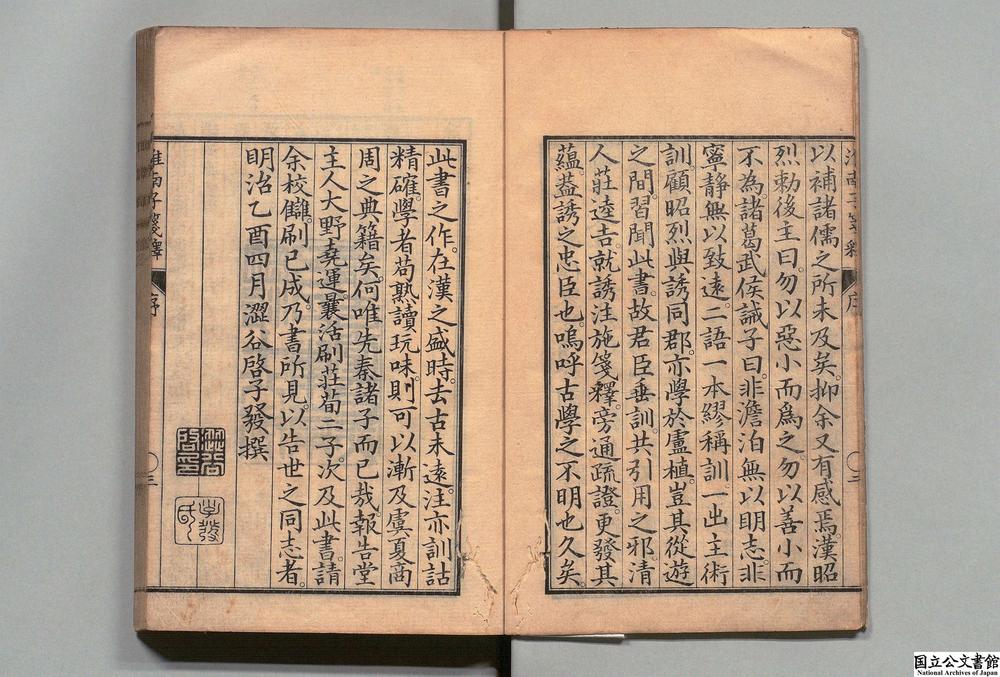 以補諸儒之所未及矣。抑余又有感焉。漢昭
烈勅後主曰。勿以惡小而爲之。勿以善小而
不為。諸葛武侯誡子曰。非澹泊無以明志。非
寧靜無以致遠。二語一本繆稱訓。一出主術
訓。顧昭烈與誘同郡。亦學於盧植。豈其從遊
之間。習聞此書。故君臣垂訓。共引用之邪。清
人莊逵吉。就誘注施箋釋。旁通疏證。更發其
蘊。葢誘之忠臣也。嗚呼古學之不明也久矣。
淮南子箋釋
序
〇三
此書之作。在漢之盛時。去古未遠。注亦訓詁
精確。學者苟熟讀玩味。則可以漸及虞夏商
周之典籍矣。何唯先秦諸子而已哉。報告堂
主人大野堯運。曩活刷莊荀二子。次及此書。請
余校讎。刷已成。乃書所見。以告世之同志者。
明治乙酉四月澀谷啓子發撰
澀谷啓印
子發氏
淮南子箋釋
序
〇三
国立公文書館
National Archives of Japan